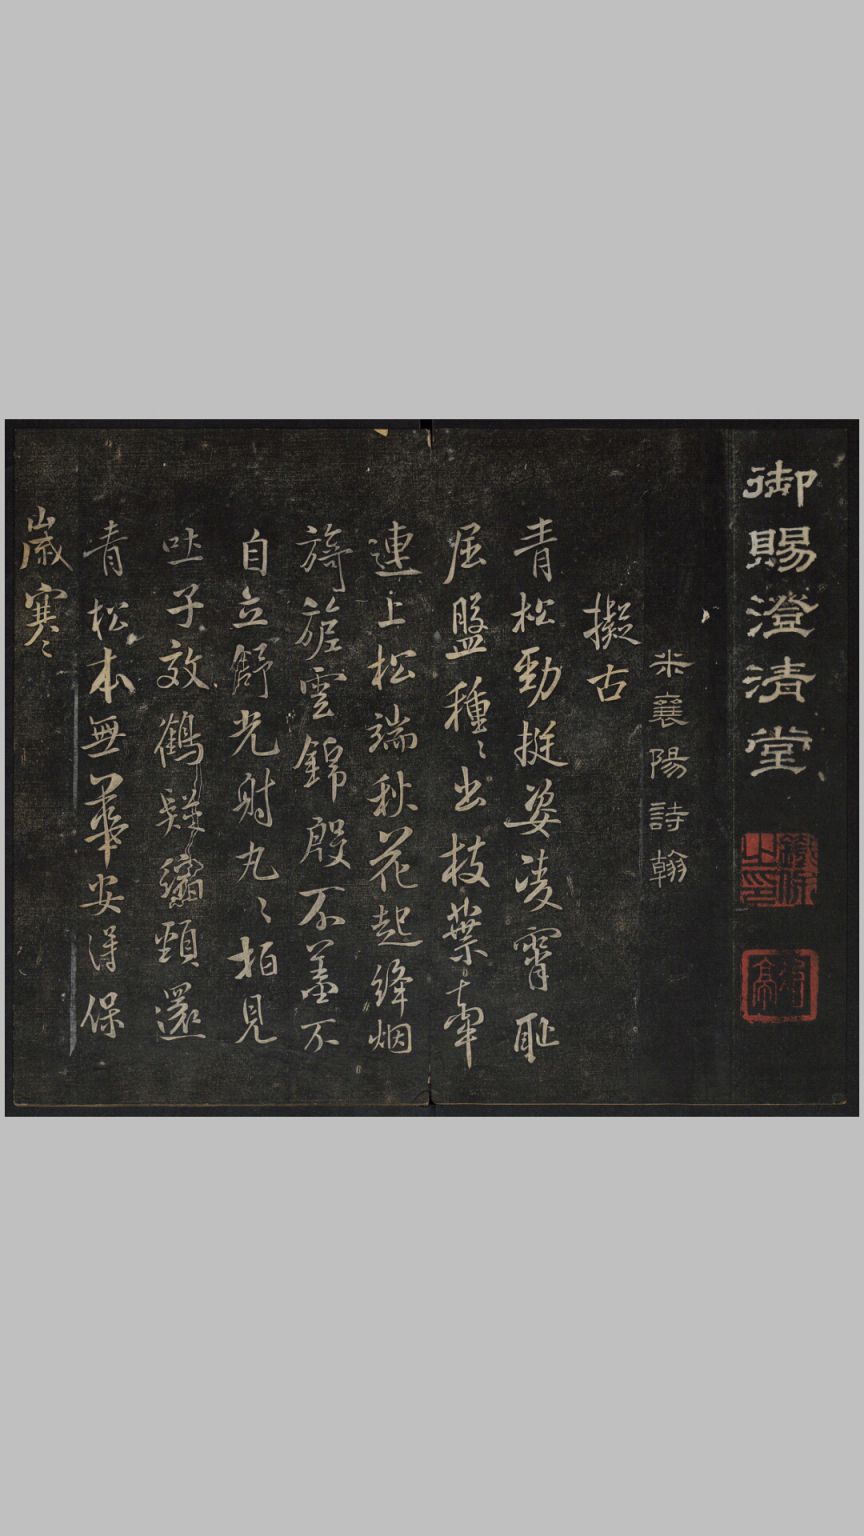 御賜澄清堂
米襄陽詩翰
擬古
青松勁挺姿凌霄耻
屈盤種〻出枝葉牽
連上松端秋花起絳烟
旖旎雲錦殷不羞不
自立舒光射丸〻柏見
吐子效鶴疑縮頸還
青松本無華安得保
歲寒〻